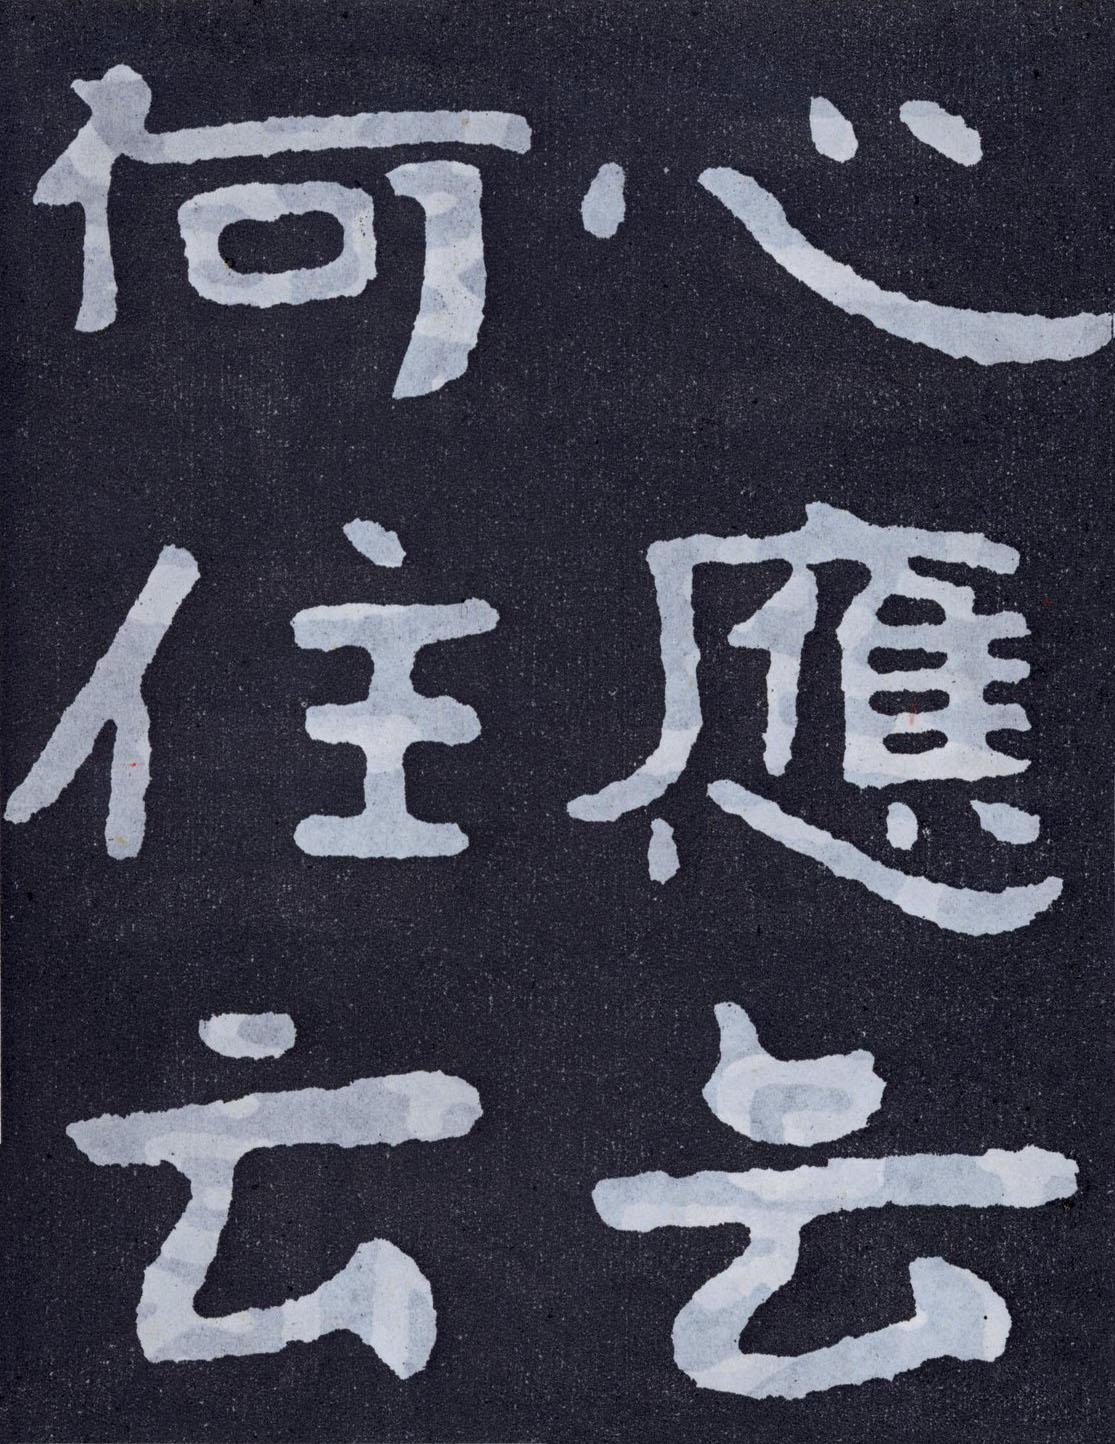 心應云
何住云